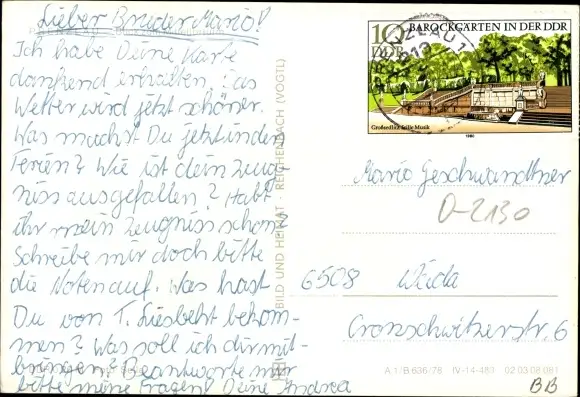 Lieber Bruder Mario!
Ich habe Deine Karte
dankend erhalten, das
Wetter wird jetzt schöner.
Was machst Du jetzt in den
Ferien? Wie ist dein Zeug-
niss ausgefallen? Habt
ihr mein Zeugniss schon?
Schreibe mir doch bitte
die Noten auf. Was hast
Du von T. Liesbeht bekom-
men? Was soll ich dir mit-
bringen? Beantworte mir
bitte meine Fragen! Deine Andrea
BILD UND HEIMAT · REICHENBACH (VOGTL)
10
DDR
BAROCKGÄRTEN IN DER DDR
Großsedlitz, Stille Musik
1980
Mario Geschwandtner
0-2130
6508 Weida
Cronschwitzerstr. 6
A 1/B 636/78 IV-14-483 02 03 08 081
BB